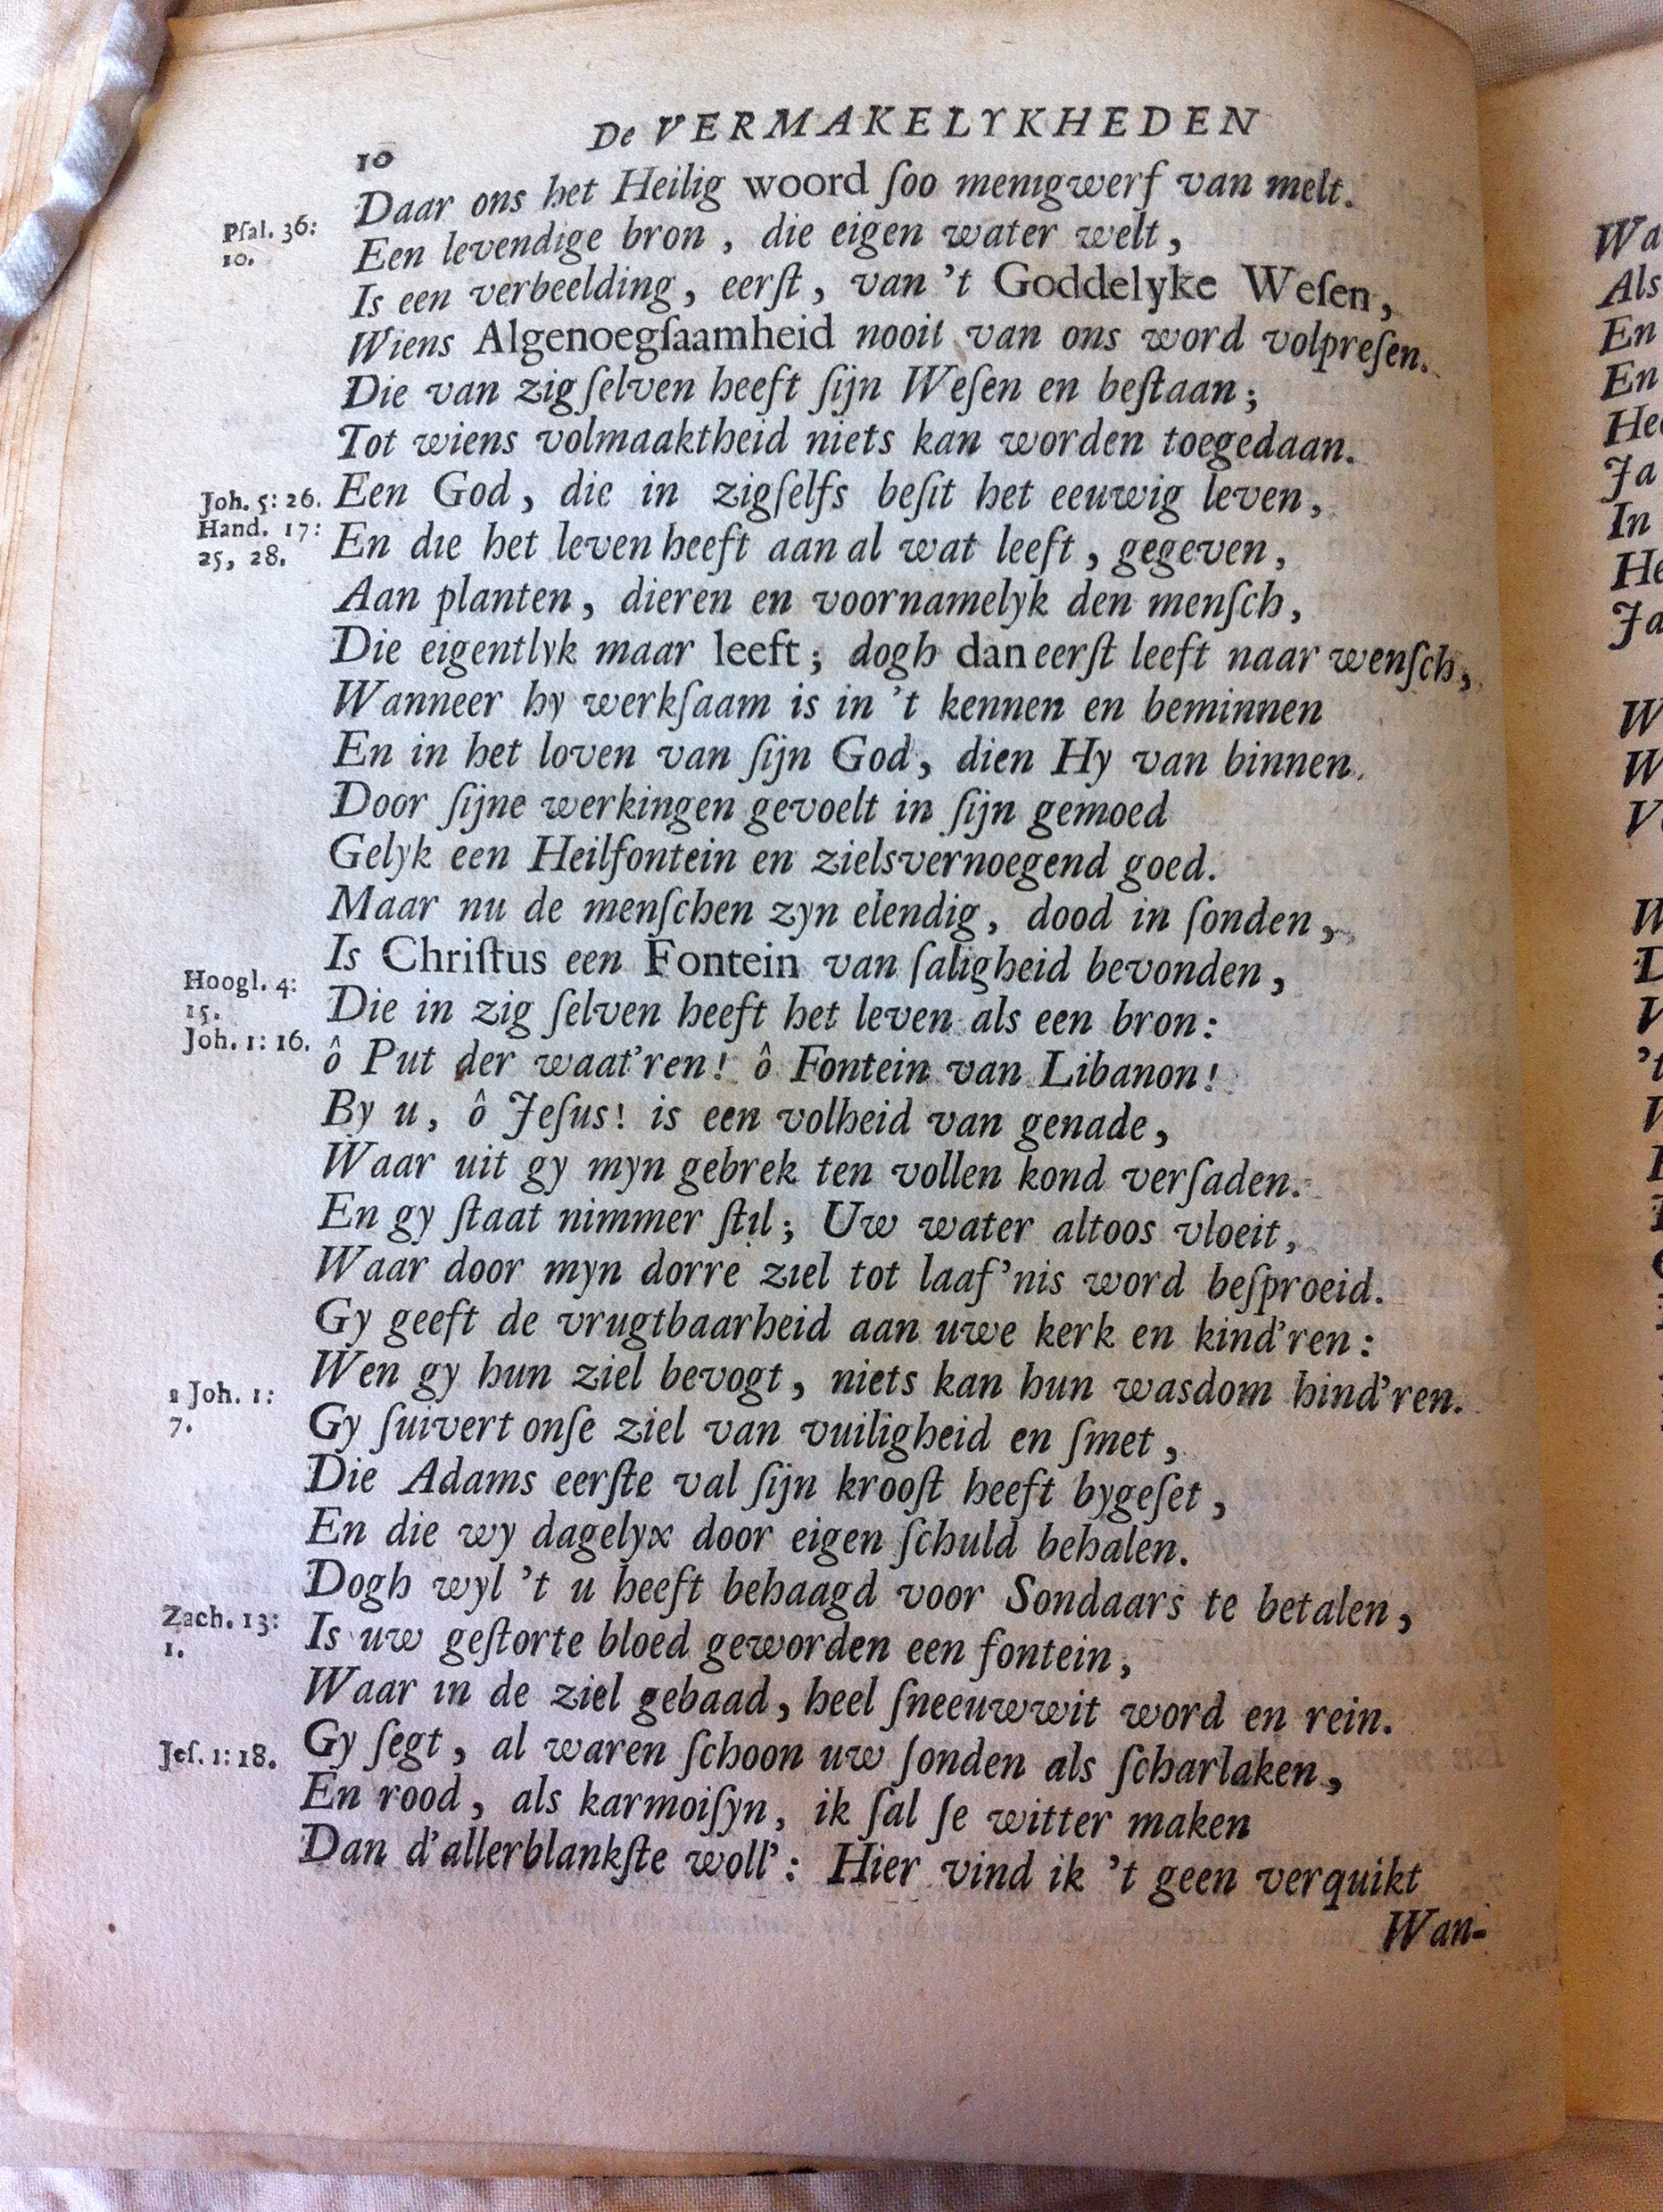 De VERMAKELYKHEDEN
10
Daar ons het Heilig woord ſoo menigwerf van melt.
Pſal. 36:
10.
Een levendige bron, die eigen water welt,
Is een verbeelding, eerſt, van 't Goddelyke Weſen,
Wiens Algenoegſaamheid nooit van ons word volpreſen.
Die van zig ſelven heeft ſijn Weſen en beſtaan;
Tot wiens volmaaktheid niets kan worden toegedaan.
Joh. 5: 26.
Hand. 17:
25, 28.
Een God, die in zigſelfs beſit het eeuwig leven,
En die het leven heeft aan al wat leeft, gegeven,
Aan planten, dieren en voornamelyk den menſch,
Die eigentlyk maar leeft; dogh dan eerſt leeft naar wenſch,
Wanneer hy werkſaam is in 't kennen en beminnen
En in het loven van ſijn God, dien Hy van binnen
Door ſijne werkingen gevoelt in ſijn gemoed
Gelyk een Heilfontein en zielsvernoegend goed.
Maar nu de menſchen zyn elendig, dood in ſonden,
Is Chriſtus een Fontein van ſaligheid bevonden,
Hoogl. 4:
15.
Joh. 1: 16.
Die in zig ſelven heeft het leven als een bron:
ô Put der waat'ren! ô Fontein van Libanon!
By u, ô Jeſus! is een volheid van genade,
Waar uit gy myn gebrek ten vollen kond verſaden.
En gy ſtaat nimmer ſtil; Uw water altoos vloeit,
Waar door myn dorre ziel tot laaf'nis word beſproeid.
Gy geeft de vrugtbaarheid aan uwe kerk en kind'ren:
Wen gy hun ziel bevogt, niets kan hun wasdom hind'ren.
1 Joh. 1:
7.
Gy ſuivert onſe ziel van vuiligheid en ſmet,
Die Adams eerſte val ſijn krooſt heeft bygeſet,
En die wy dagelyx door eigen ſchuld behalen.
Dogh wyl 't u heeft behaagd voor Sondaars te betalen,
Zach. 13:
1.
Is uw geſtorte bloed geworden een fontein,
Waar in de ziel gebaad, heel ſneeuwwit word en rein.
Jeſ. 1: 18.
Gy ſegt, al waren ſchoon uw ſonden als ſcharlaken,
En rood, als karmoiſyn, ik ſal ſe witter maken
Dan d'allerblankſte woll': Hier vind ik 't geen verquikt
Wan-
Wa
Als
En
En
Hee
Ja
In
He
Ja
W
W